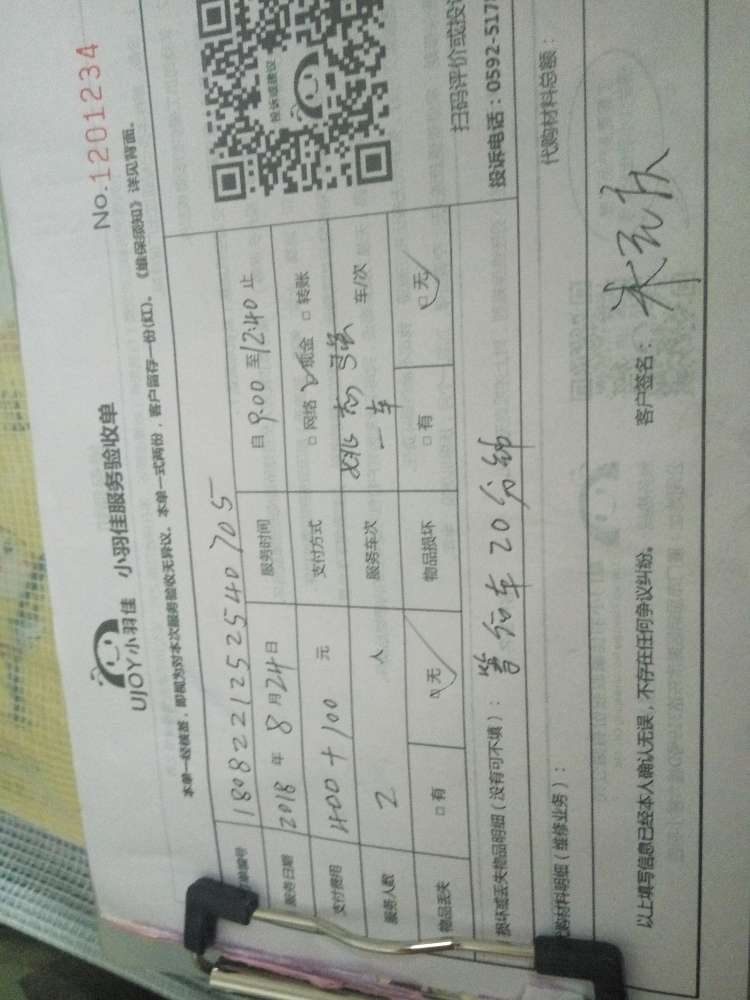 No.1201234
UJOY小羽佳 小羽佳服务验收单
本单一经核签，即视为对本次服务验收无异议。本单一式两份，客户留存一份(红)。《维保须知》详见背面。
订单编号 1808221252540705
服务日期 2018 年 8 月 24 日 服务时间 自 9:00 至 12:40 止
支付费用 400+100 元 支付方式 □ 网络 ☑ 现金 □ 转账
服务人数 2 人 服务车次 一车 车/次
物品丢失 □ 有 ☑ 无 物品损坏 □ 有 ☑ 无
投诉或建议
扫码评价或投诉
投诉电话：0592-517
损坏或丢失物品明细（没有可不填）： 20分钟
代购材料明细（维修业务）： 代购材料总额：
以上填写信息已经本人确认无误，不存在任何争议纠纷。 客户签名：